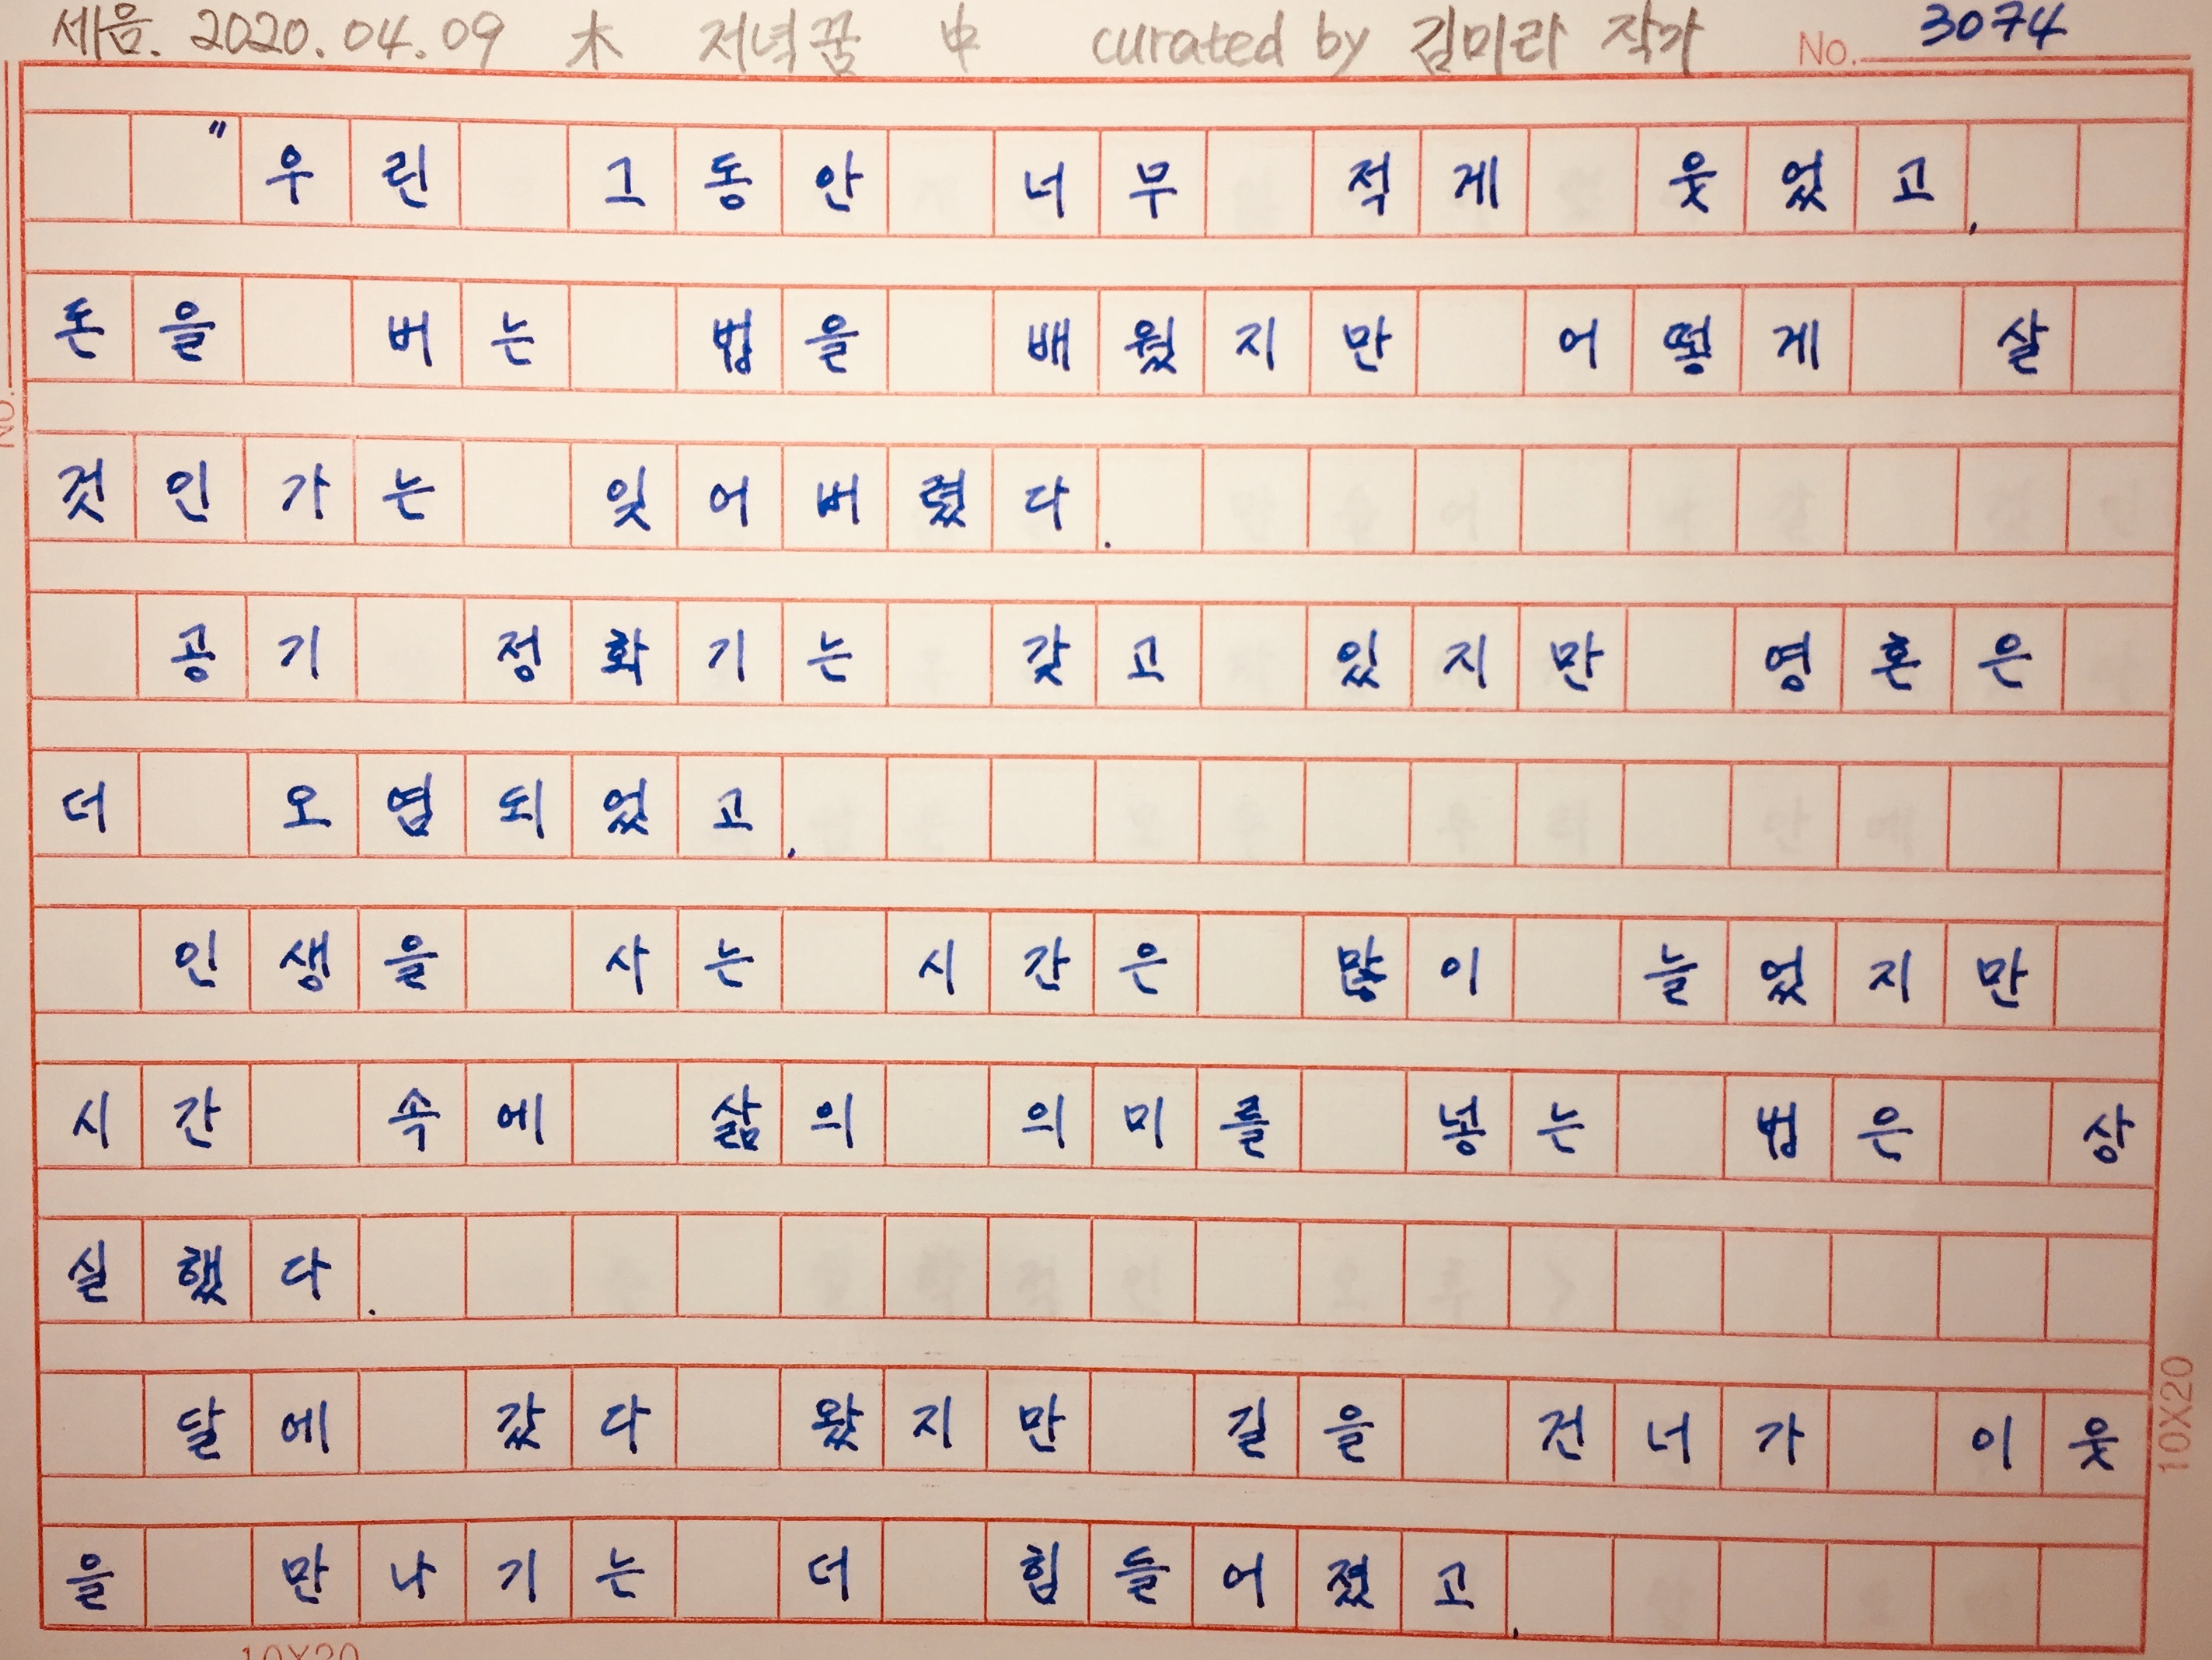 세음. 2020.04.09 木 저녁꿈 中 curated by 김미라 작가 No. 3074
"우린 그동안 너무 적게 웃었고,
돈을 버는 법을 배웠지만 어떻게 살
것인가는 잊어버렸다.
공기 정화기는 갖고 있지만 영혼은
더 오염되었고,
인생을 사는 시간은 많이 늘었지만
시간 속에 삶의 의미를 넣는 법은 상
실했다.
달에 갔다 왔지만 길을 건너가 이웃
을 만나기는 더 힘들어졌고,
10X20
10X20
No.